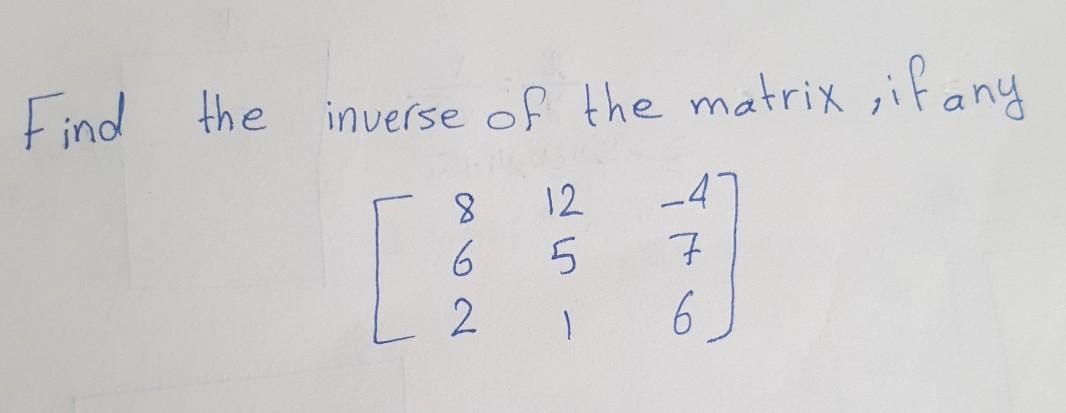 Find the inverse of the matrix, if any
8 12 -4
6 5 7
2 1 6